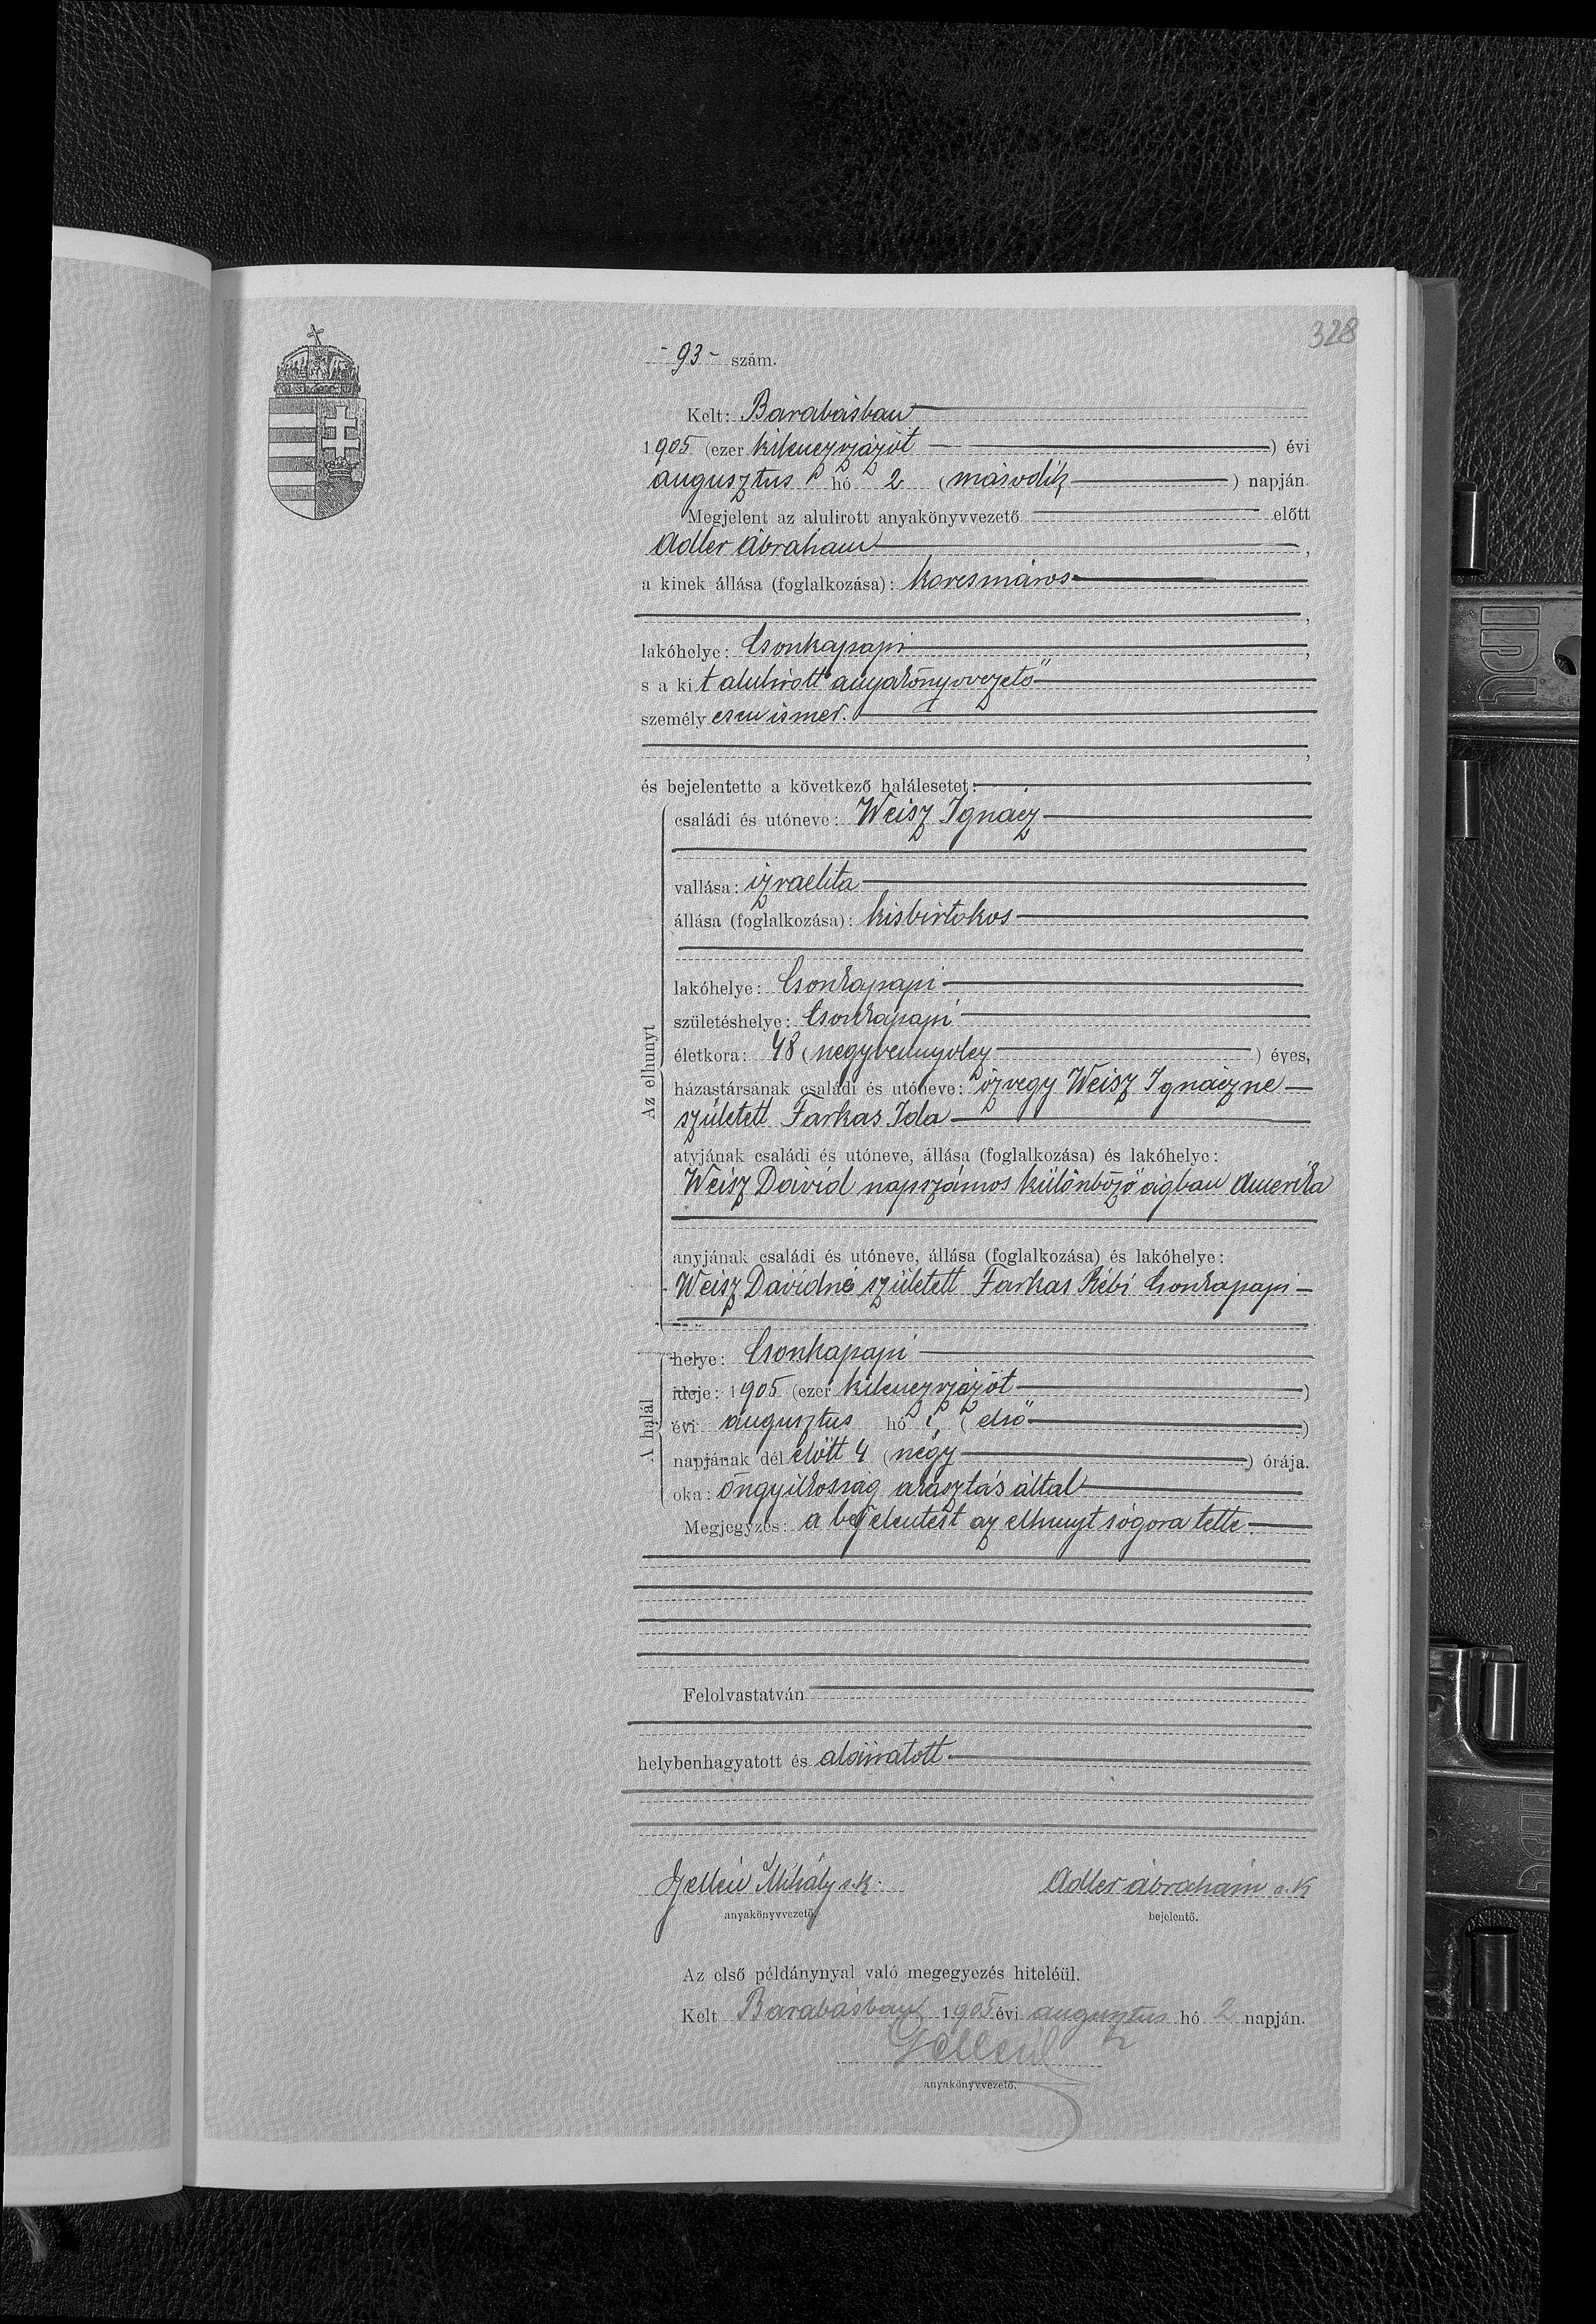 328
- 93 - szám.
Kelt: Barabásban
1905 (ezer kilenczszázöt) évi
augusztus hó 2 (második) napján.
Megjelent az alulirott anyakönyvvezető előtt
Adler Ábrahám,
a kinek állása (foglalkozása): korcsmáros
,
lakóhelye: Csonkapapi,
s a kit alulirott anyakönyvvezető
személyesen ismer.
,
és bejelentette a következő halálesetet:
Az elhunyt
családi és utóneve: Weisz Ignácz
vallása: izraelita
állása (foglalkozása): kisbirtokos
lakóhelye: Csonkapapi
születéshelye: Csonkapapi
életkora: 48 (negyvennyolcz) éves,
házastársának családi és utóneve: özvegy Weisz Ignáczne
született Farkas Ida
atyjának családi és utóneve, állása (foglalkozása) és lakóhelye:
Weisz Dávid napszámos különböző ágban Amerika
anyjának családi és utóneve, állása (foglalkozása) és lakóhelye:
Weisz Dávidné született Farkas Rébi Csonkapapi
A halál
helye: Csonkapapi
ideje: 1905 (ezer kilenczszázöt)
évi augusztus hó 1, (első)
napjának dél előtt 4 (négy) órája.
oka: öngyilkosság akasztás által
Megjegyzés: a bejelentést az elhunyt sógora tette.
Felolvastatván
helybenhagyatott és aláíratott
Gellén Mihály s. k. Adler Ábrahám s. k
anyakönyvvezető, bejelentő.
Az első példánynyal való megegyezés hiteléül.
Kelt Barabásban 1905 évi augusztus hó 2 napján.
Gellén
anyakönyvvezető.